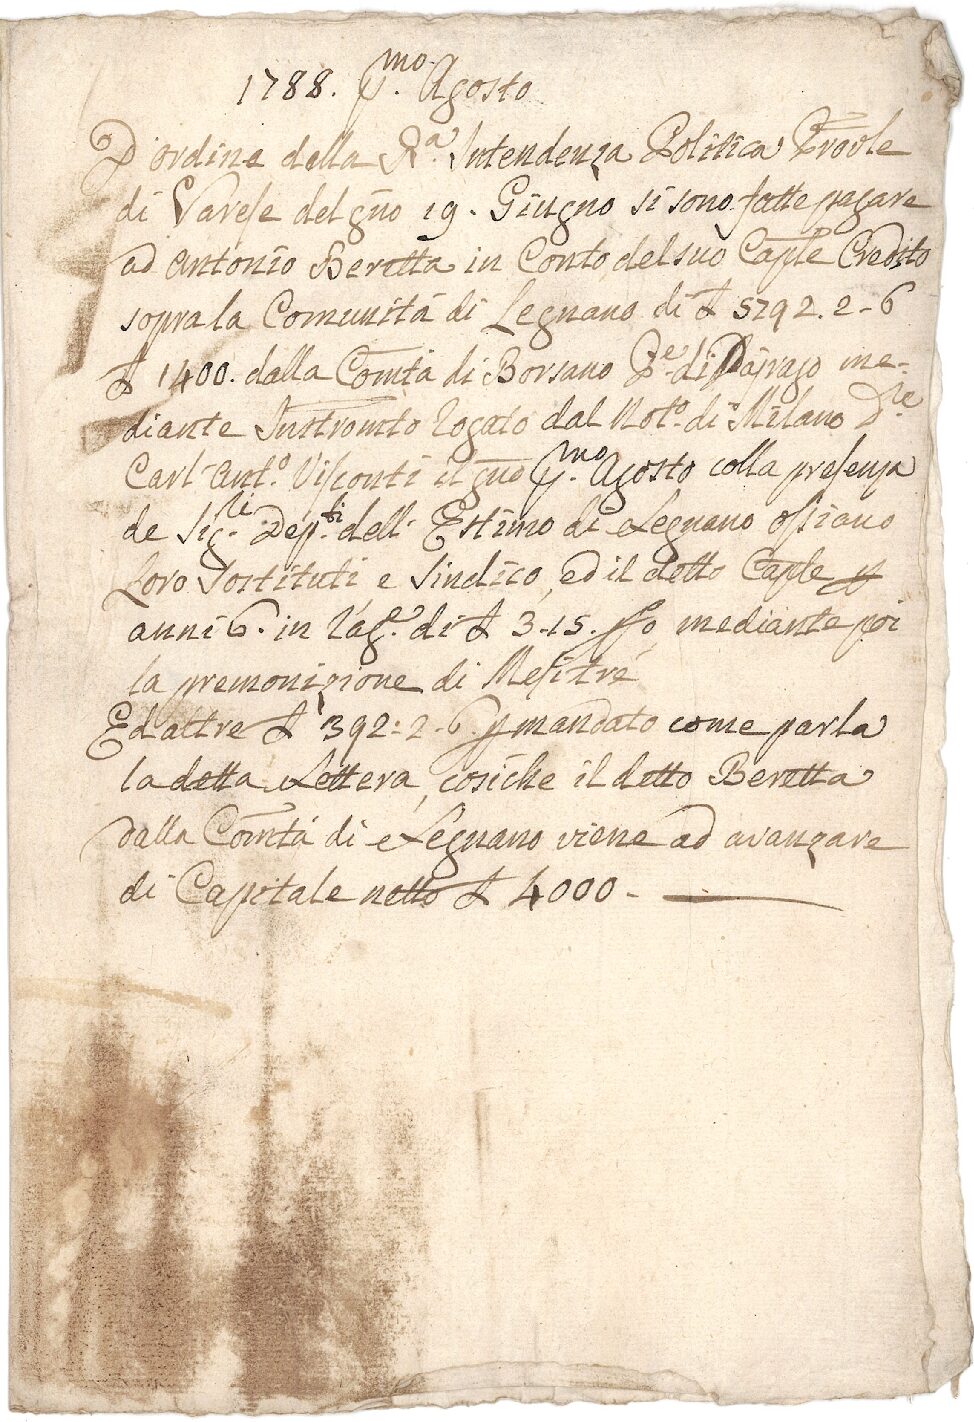 1788. P.mo Agosto
D'ordine della R.a Intendenza Politica Prov̄le
di Varese del gño 19. Giugno si sono fatte pagare
ad Antonio Beretta in Conto del suo Cap̄le Credito
sopra la Comunità di Legnano di £ 5792. 2-6
£ 1400. dalla Com̄tà di Borsano P.e di Dairago me-
diante Instrom̄to Rogato dal Not.o di Milano D.re
Carl'Ant.o Visconti il gño P.mo Agosto colla presenza
de Sig.ri Dep.ti dell'Estimo di Legnano ossiano
Loro Sostituti, e Sindico, ed il detto Cap̄le p
anni 6. in rag.e di £ 3-15. p%, mediante poi
la premonizione di Mesi tré
Ed altre £ 392:2-6. p mandato come parla
la detta Lettera, cosiche il detto Beretta
dalla Com̄tà di Legnano viene ad avanzare
di Capitale netto £ 4000-